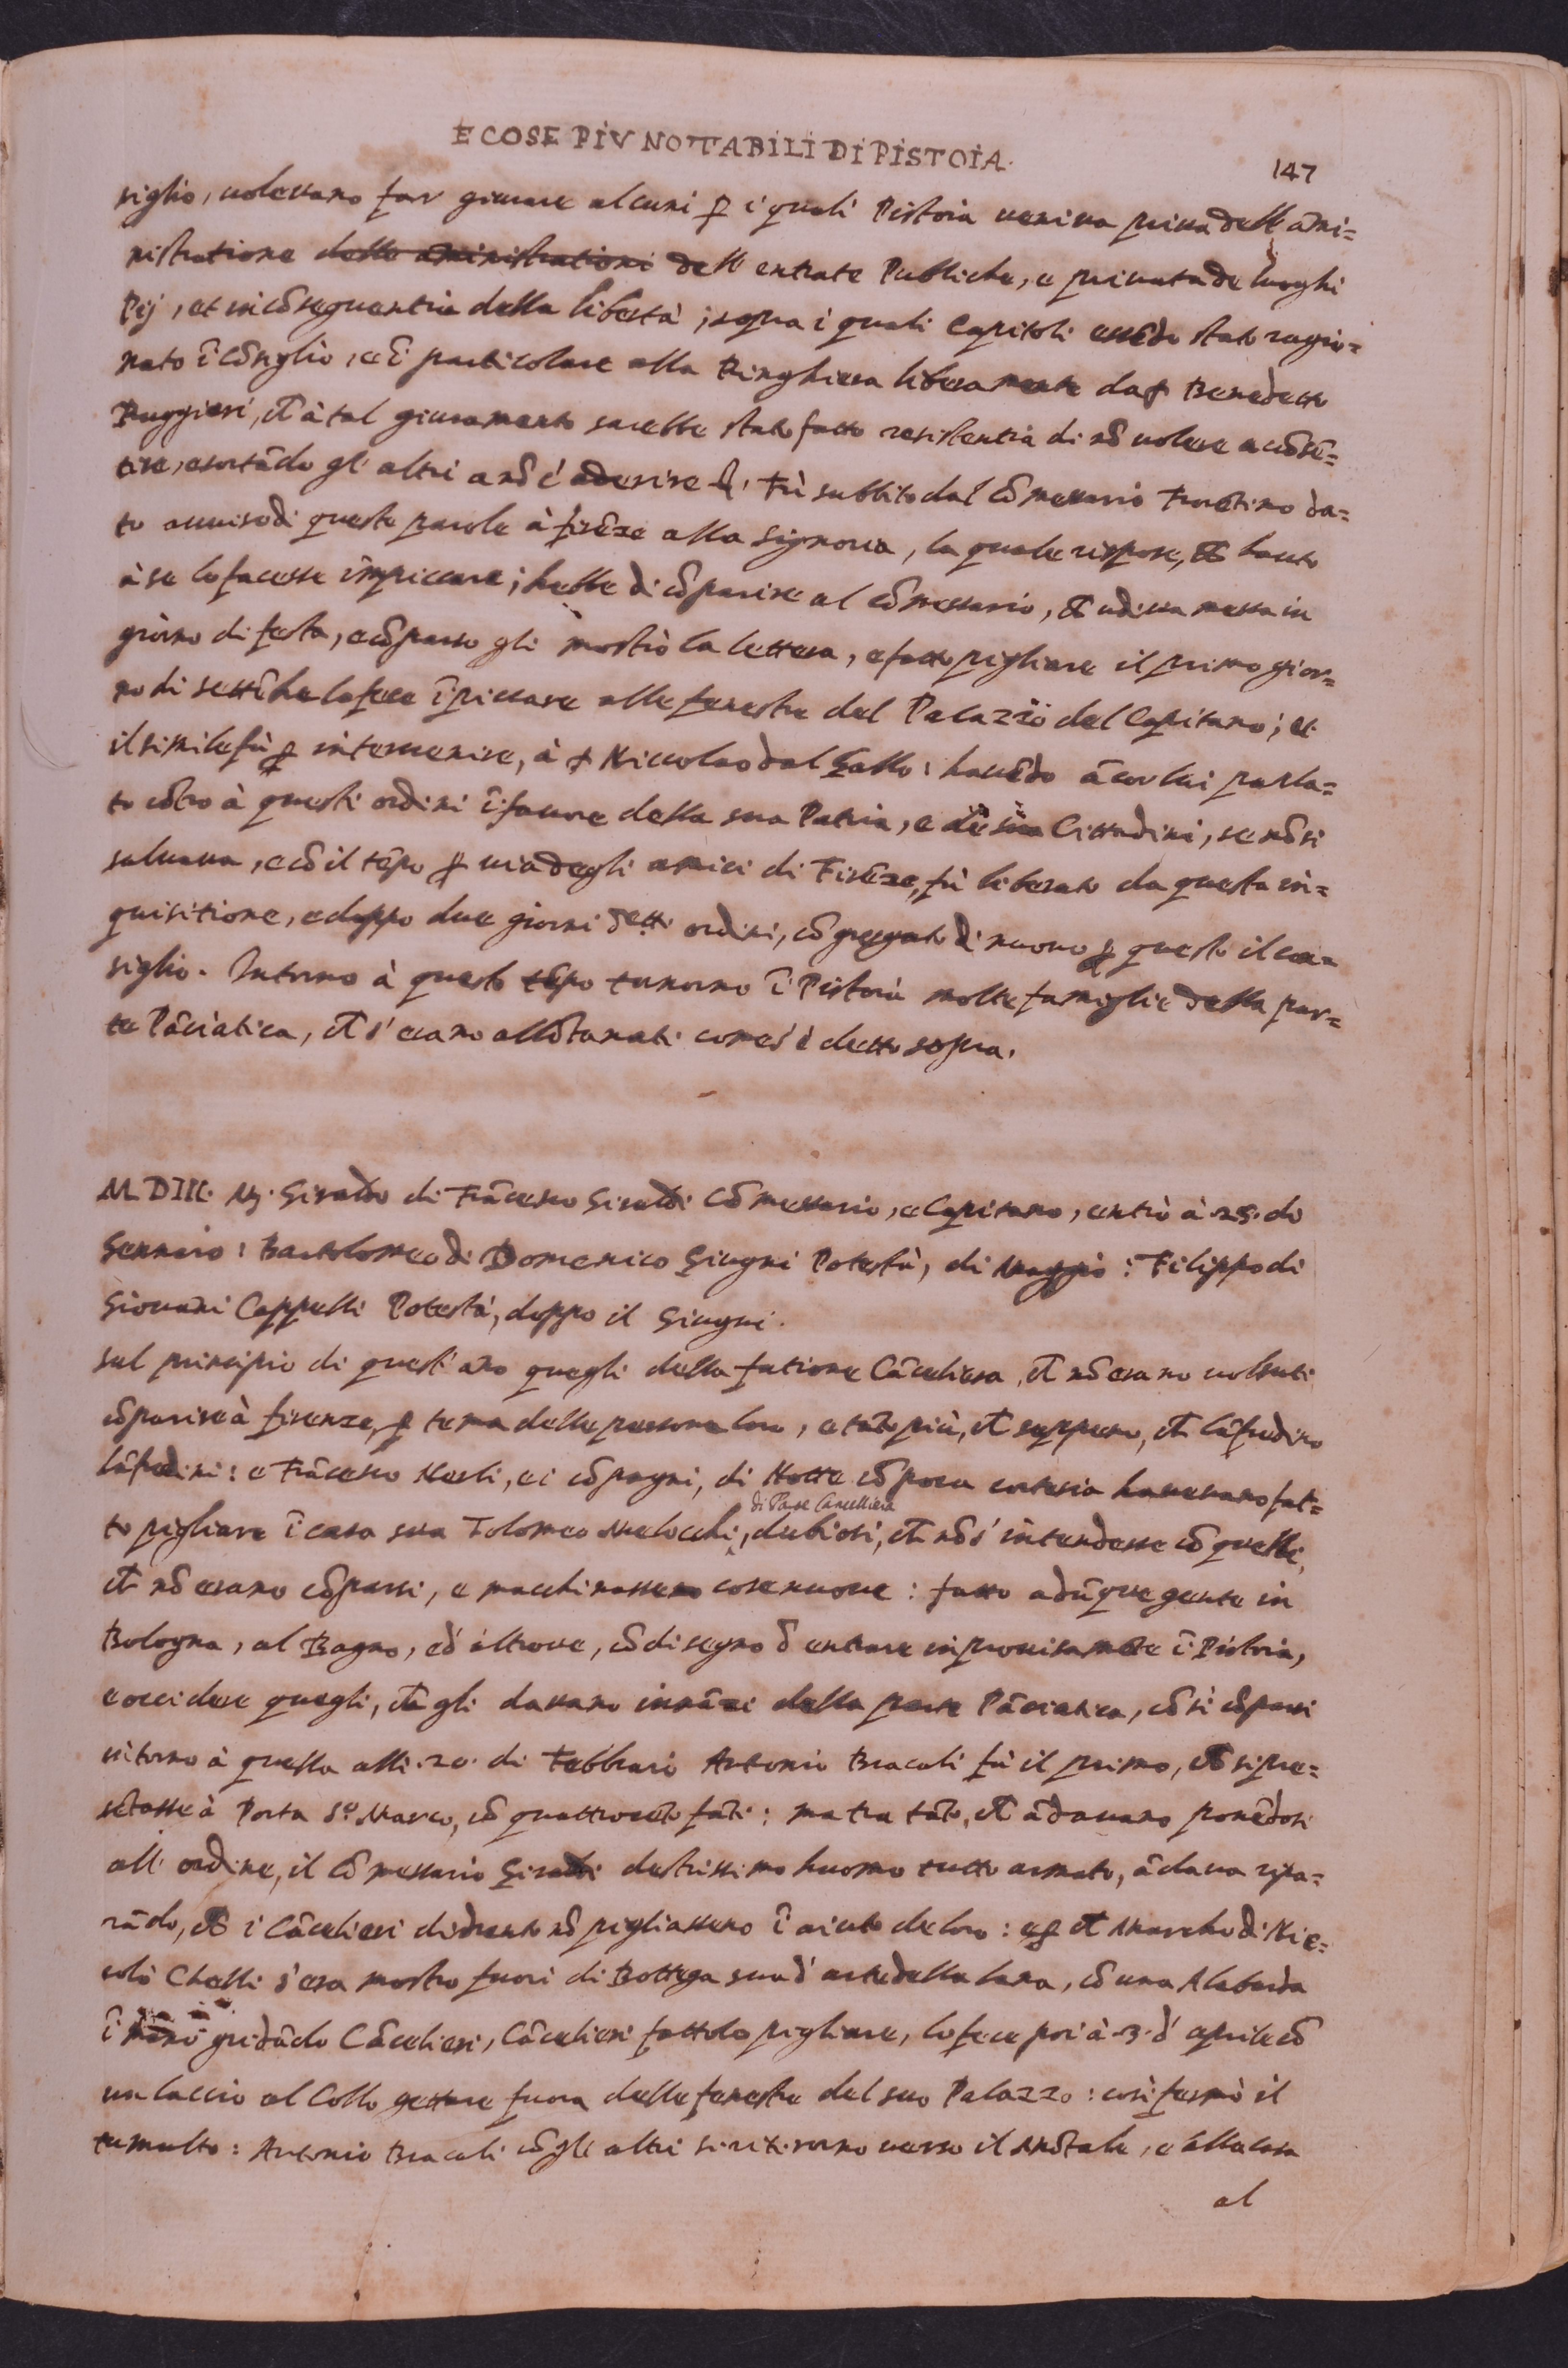 E COSE PIV NOTTABILI DI PISTOIA.
147
siglio, uolessano far giurare alcuni ꝑ i quali Pistoia ueniua priua dell' am̃i=
nistratione delle aministrationi dell' entrate Publiche, e priuata de luoghi
Pij, et in cõsequentia della libertà; sopra i quali Capitoli essẽdo stato ragio=
nato ĩ cõsiglio, e ĩ particolare alla Ringhiera liberamente da Benedetto
Ruggieri, à tal giuramento sarebbe stato fatto resistentia di nõ uolere acõsẽ=
tire, esortãdo gl' altri a nõ c' aderire. Fù subbito dal Cõmessario Fiorẽtino da=
to auuiso di queste parole à firẽze alla Signoria, la quale rispose,
à se lo facesse impiccare; hebbe di cõparire al cõmessario, udissa messa in
giorno di festa, e cõparso gli mostrò la lettera, e fatto pigliare il primo gior=
no di lo fece ĩpiccare alle fenestre del Palazzo del Capitano; et
il simile fù ꝑ interuenire, à Niccolao dal Gallo: hauẽdo ãcor lui parla=
to cõtro à questi ordini ĩ fauore della sua Patria, e Cittadini, se nõ si
saluaua, e cõ il tẽpo ꝑ uia degli amici di Firẽze, fù liberato da questa in=
quisitione, e doppo due giorni detti ordini, cõgregato di nuouo ꝑ questo il con=
siglio. Intorno à questo tẽpo tornorno ĩ Pistoia molte famiglie della par=
te Pãciatica, s' erano allõtanati come s' è detto sopra.
M. DIII. Giraldo di Frãcesco Giraldi Cõmessario, e Capitano, entrò à .25. di
Gennaio: Bartolomeo di Domenico Giugni Potestà, di Maggio: Filippo di
Giouãni Cappelli Potestà, doppo il Giugni.
Sul principio di quest' ãno quegli della fatione Cãceliera, nõ erano uolsuti
cõparire à firenze, ꝑ tema delle persone loro, e tãto più, seppero, Lãfredino
Lãfredini: e Frãcesco Nerli, e i cõpagni, di Notte cõ poca cortesia haueuano fat=
to pigliare ĩ casa sua Tolomeo Melocchi, di Parte Cancelliera dubiosi, nõ s' intendesse cõ quelli,
nõ erano cõparsi, e macchinasseno cose nuoue: fatto adũque gente in
Bologna, al Bagno, ed' altroue, cõ disegno d' entrare inprouisamẽte ĩ Pistoia,
e occidere quegli, gli dauano innãzi della parte Pãciatica, cõsì cõparsi
intorno à quella alli .20. di Febbraio Antonio Bracali fù il primo, si pre=
sẽtasse à Porta S.º Marco, cõ quattrocẽto fãti: ma tra tãto, ãdauano ponẽdosi
all' ordine, il Cõmessario Giraldi destrissimo huomo tutto armato, ãdaua ripa=
rãdo, i Cãcelieri didrento nõ pigliasseno ĩ aiuto de loro: Marcho di Nic=
colò Chelli s' era mostro fuori di Bottega sua d' arte della lana, cõ una Alabarda
ĩ mano gridãdo Cãcelieri, Cãcelieri fattolo pigliare, lo fece poi à .3. d' aprile cõ
un laccio al Collo gettare fuora delle fenestre del suo Palazzo: così fermò il
tumulto: Antonio Bracali cõ gli altri si ritirorno uerso il Mõtale, e alla casa
al